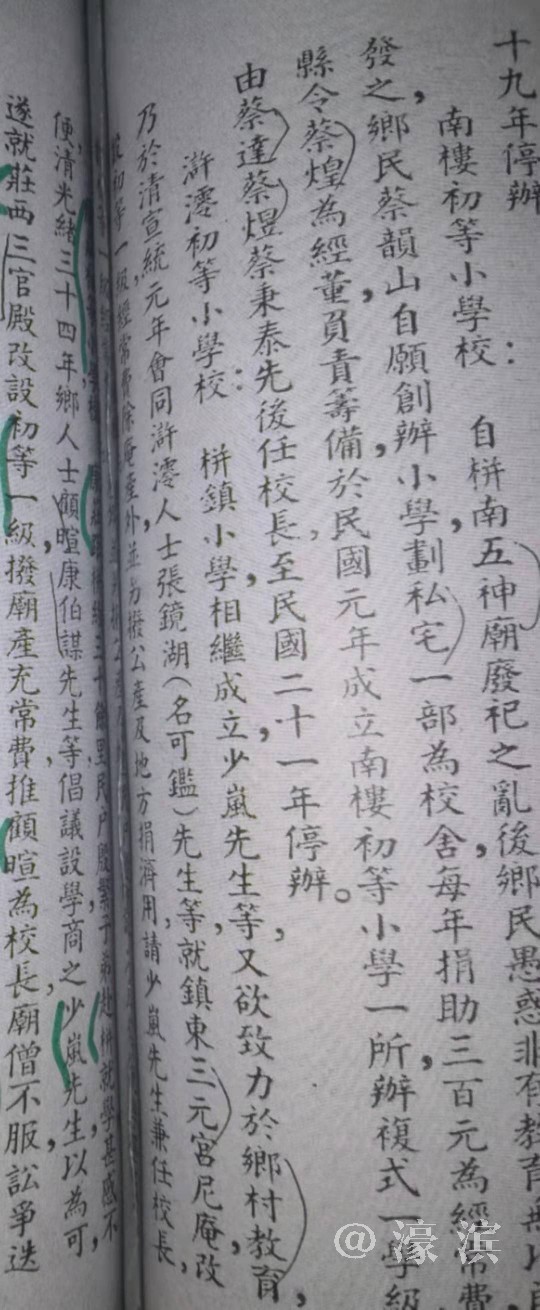 十九年停辦
南樓初等小學校：　自栟南五神廟廢祀之亂後，鄉民愚惑，非有教育無以
發之，鄉民蔡韻山自願創辦小學，劃私宅一部為校舍，每年捐助三百元為經常費
縣令蔡煌為經董，負責籌備，於民國元年成立南樓初等小學一所，辦複式一學級
由蔡達蔡煜蔡秉泰先後任校長，至民國二十一年停辦。
滸澪初等小學校：　栟鎮小學相繼成立，少嵐先生等，又欲致力於鄉村教育，
乃於清宣統元年會同滸澪人士張鏡湖（名可鑑）先生等，就鎮東三元宮尼庵，改
初等一級，經常費除庵產外，並另撥公產及地方捐濟用，請少嵐先生兼任校長，
里民戶殷繁，子弟赴栟就學，甚感不
便，清光緒三十四年，鄉人士顧暄康伯謀先生等倡議設學，商之少嵐先生，以為可，
遂就莊西三官殿改設初等一級，撥廟產充常費，推顧暄為校長，廟僧不服，訟爭迭
@濠滨